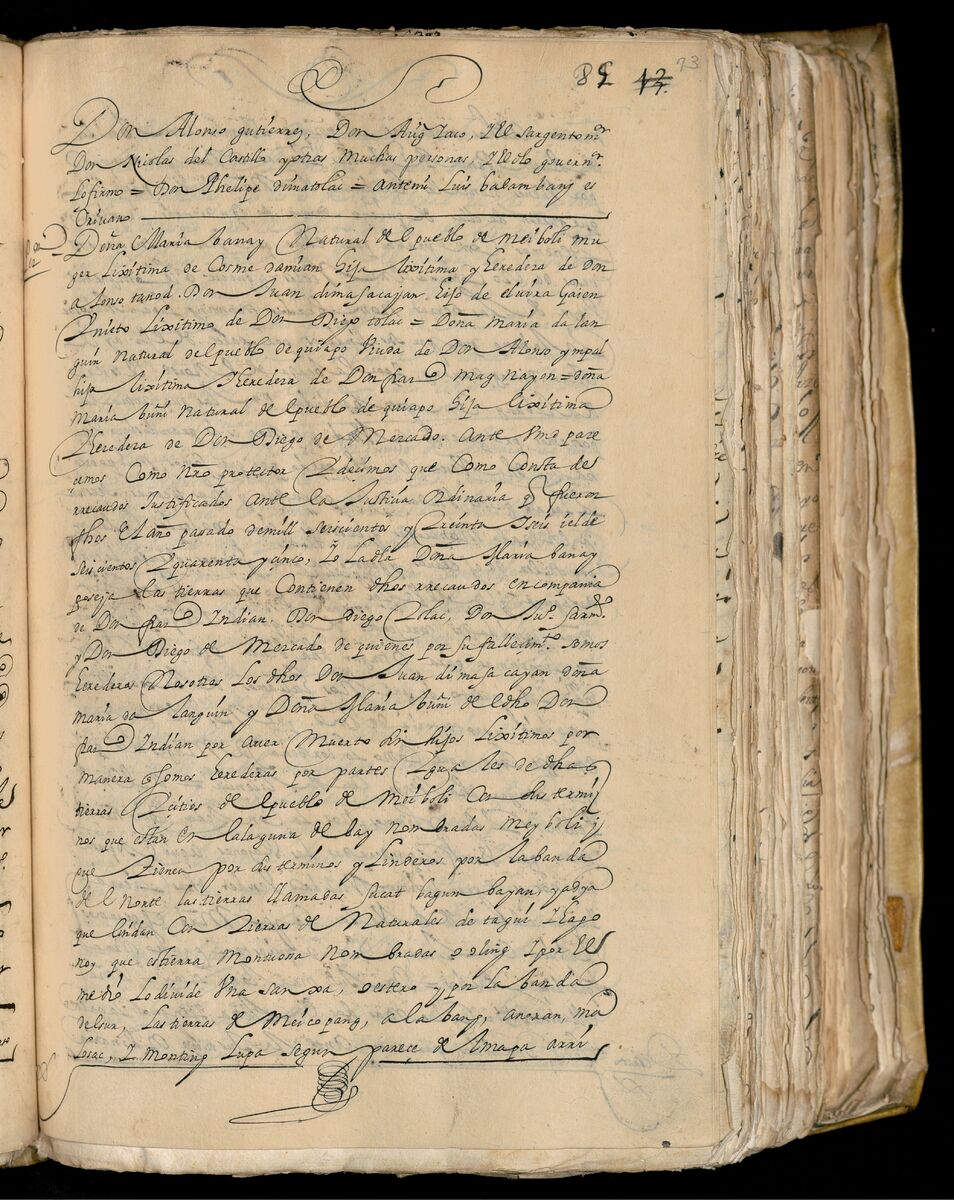 85 12 73
Don Alonso gutierrez, Don Aug Taco, Y El Sargentomr
Don Nicolas del Castillo y otras muchas personas, Y El dho governr.
Lo firmo = Don Phelipe dimatolac = antemi Luis balambang es
Crivano
Doña Maria banay Natural del pueblo de meiboli mu
ger Lixitima de Cosme damian hija lixitima y heredera de don
alonso tanod. Don Juan dimasacajan hijo de elvira Gaien
Y nieto Lixitimo de Don Diego tolac = Doña Maria da lan
guin natural del pueblo de quiapo Viuda de Don Alonso ympal
hija lixitima Y heredera de Don fran mag nayon = doña
Maria buñi natural del pueblo de quiapo hija lixitima
Y heredera de Don Diego de Mercado. Ante Vmd pare
cemos Como nro protector Y decimos que Como Consta de
rrecaudos Justificados ante la Justiçia ordinaria q fueron
fhos el año pasado de mill seiscientos y treinta Y seis i el de
seiscientos Y quarenta y cinco, Yo La dha Doña Maria banay
poseja las tierras que Contienen dhos rrecaudos en compania
de Don fran Indian. Don Diego tolac, Don Jua. Sarmto.
y Don Diego de Mercado de quienes por su fallecimto. somos
herederas Nosotras Los dhos Don Juan dimasacayan doña
maria da languin y Doña Maria buñi del dho Don
fran Indian por aver Muerto sin hijos Lixitimos por
manera q somos herederas por partes Yguales de dhas
tierras Y citios del pueblo de Meiboli Con sus termi
nos que estan en la laguna de bay nombradas Meyboli
que tienen por sus terminos y Linderos por la banda
del norte las tierras llamadas sucat bagum bayan, y adya
que lindan Con tierras de Naturales de tagui Y bago
noy que es tierra montuosa nombradas o oling Y por El
medio Lo divide Una sanxa, o estero y por la banda
del sur, las tierras de Meicopang, ala bang, anoran, ma
losac, Y monting Lupa Segun pareçe del mapa arri